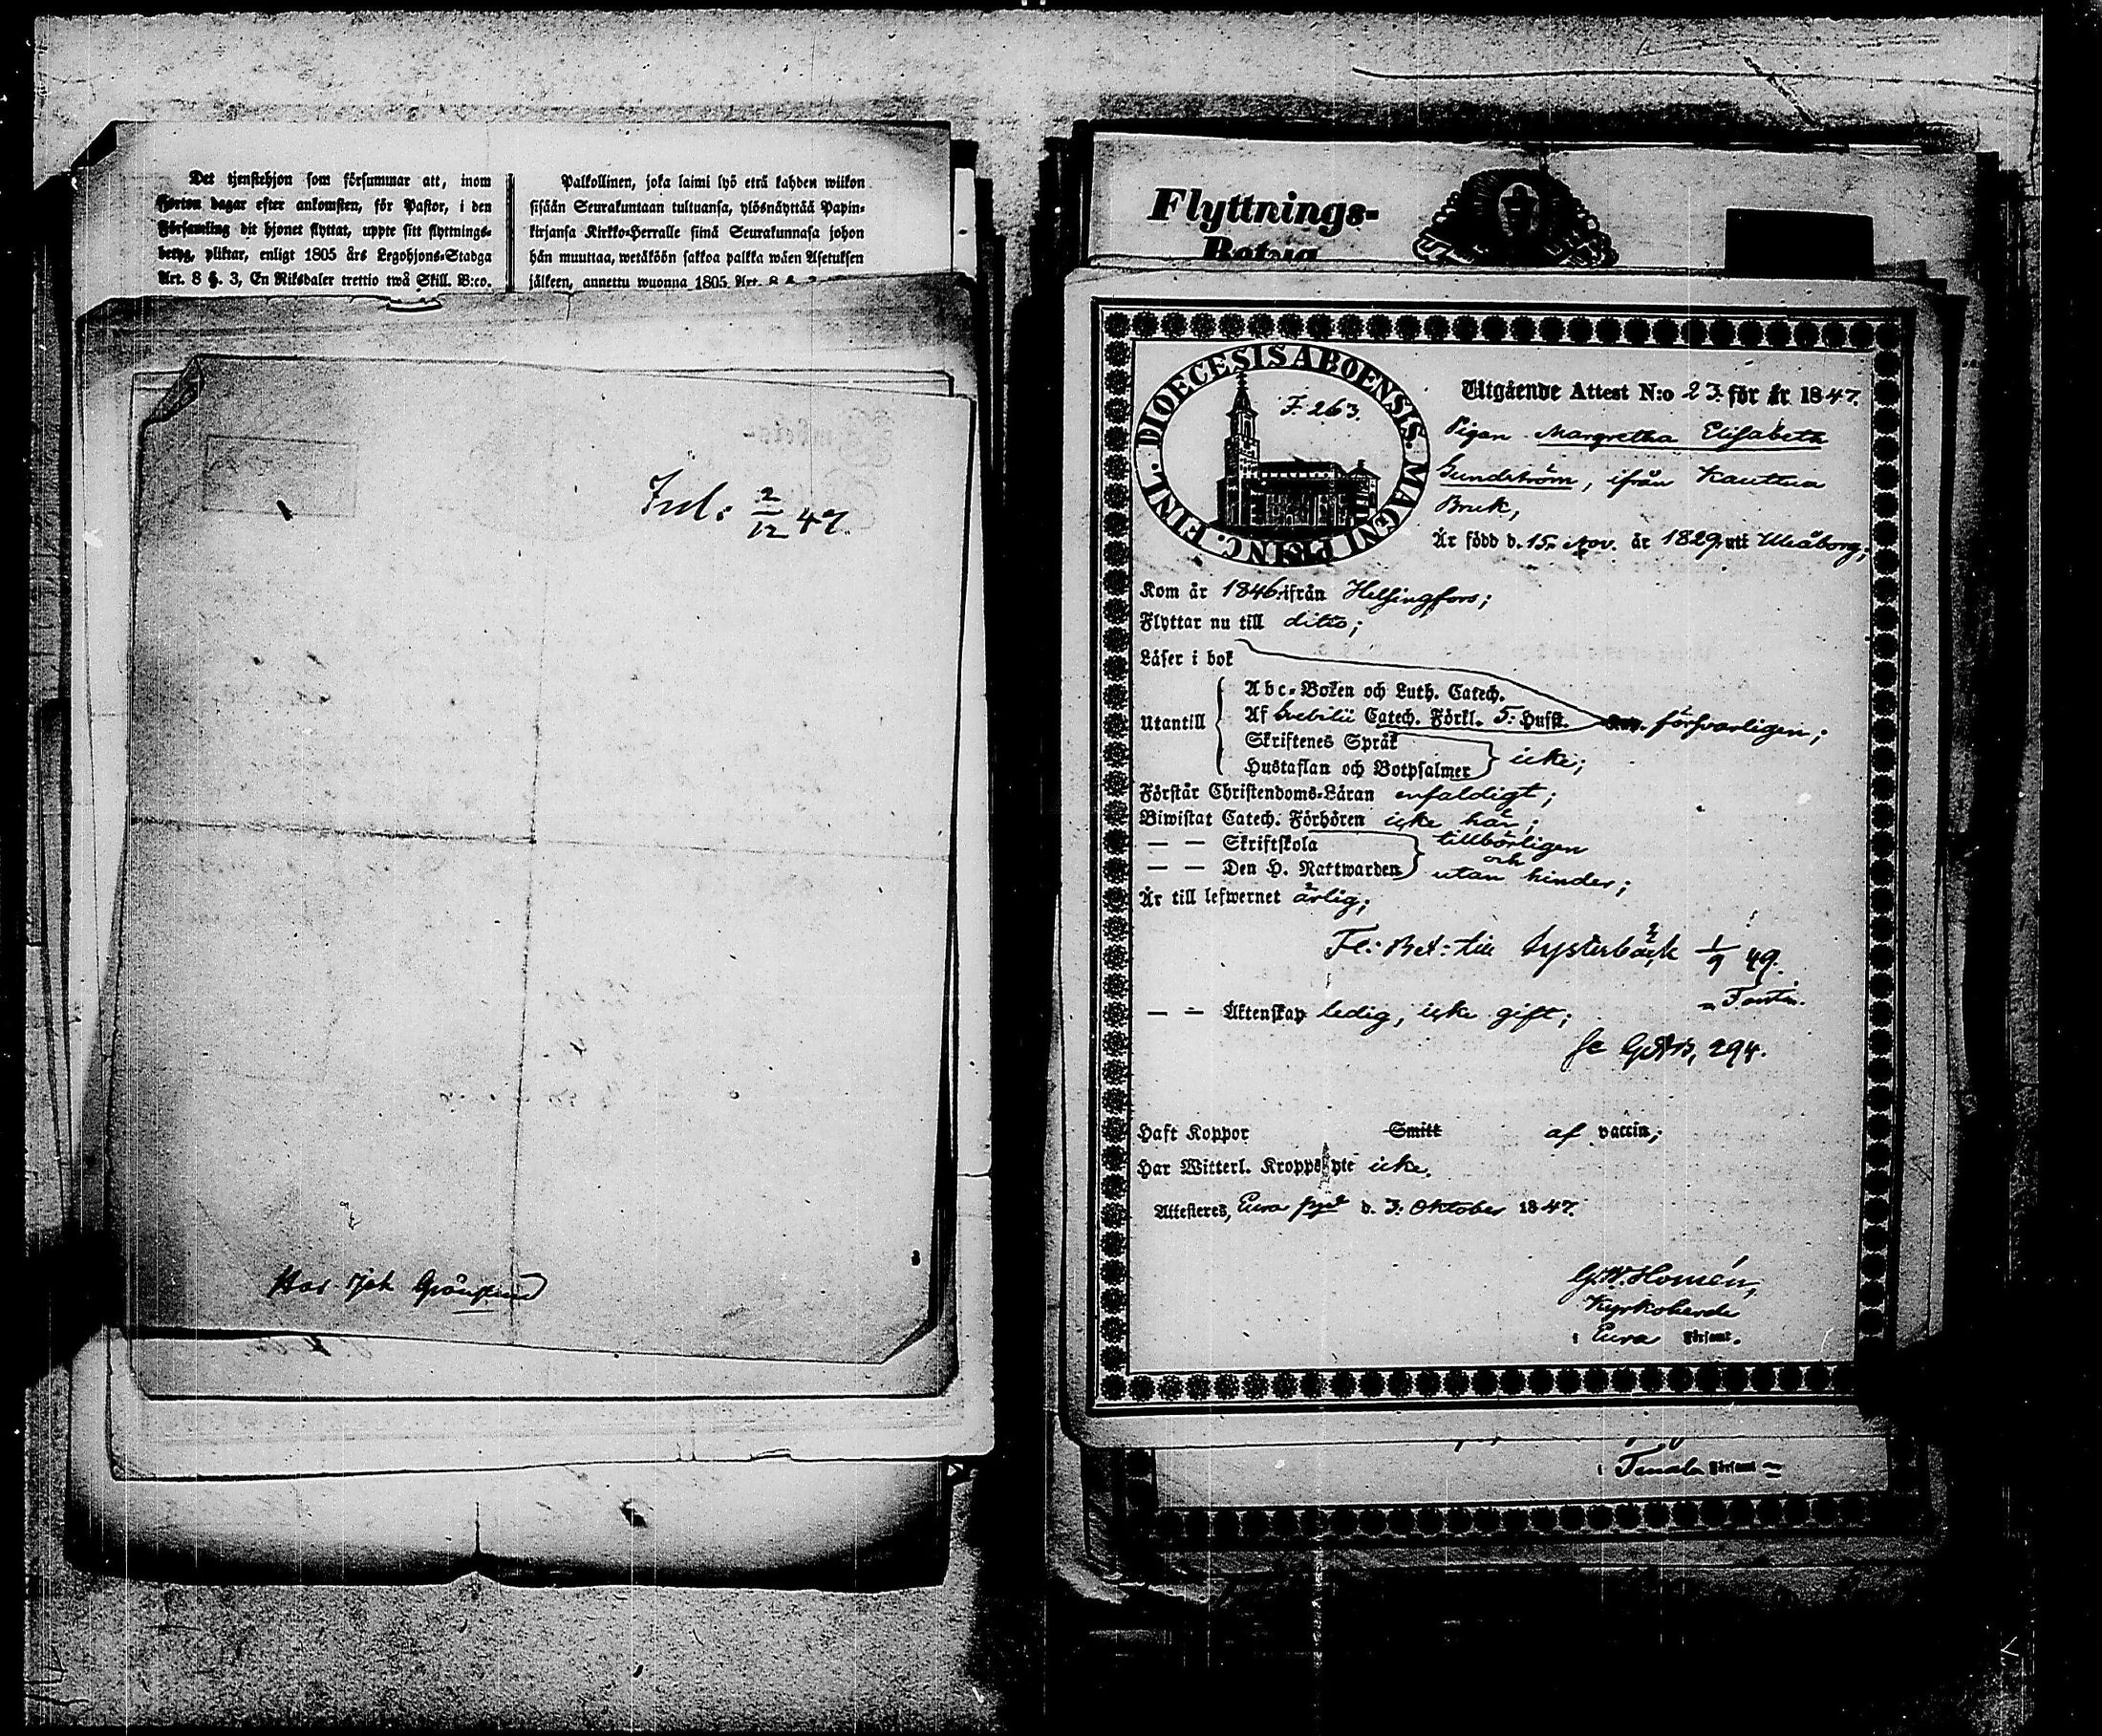 Det tjenstehjon som försummar att, inom
fjorton dagar efter ankomsten, för Pastor, i den
Församling dit hjonet flyttat, uppte sitt flyttnings-
betyg, pliktar, enligt 1805 års Legohjons-Stadga
Art. 8 §. 3, En Riksdaler trettio twå Skill. B:co.
Palkollinen, joka laimi lyö etrå kahden wiikon
sisään Seurakuntaan tultuansa, ylösnäyttää Papin-
kirjansa Kirkko-Herralle siinä Seurakunnasa johon
hän muuttaa, wetäköön sakkoa palkka wäen Asetuksen
jälkeen, annettu wuonna 1805 Art. 8 §.
Inl: 2/12 47.
Flyttnings-
Betyg
DIOECESIS ABOENSIS. MAGNI PRINC. FINL.
F. 263.
Utgående Attest N:o 23. för år 1847.
Pigan Margretha Elisabeth
Sundström, ifrån Kauttua
Bruk,
Är född d. 15. Nov. år 1829. uti Uleåborg;
Kom år 1846. ifrån Helsingfors;
Flyttar nu till ditto;
Läser i bok
Abc-Boken och Luth. Catech.
Utantill Af Svebilii Catech. Förkl. 5: Hufst. försvarligen;
Skriftenes Språk
Hustaflan och Botpsalmer icke;
Förstår Christendoms-Läran enfaldigt;
Biwistat Catech. Förhören icke här;
— — Skriftskola tillbörligen
och
— — Den H. Nattwarden utan hinder;
Är till lefwernet ärlig;
Fl: Bet: till Systerbäck 1/9 49.
— — Äktenskap ledig, icke gift;
294.
Haft Koppor Smitt af vaccin;
Har Witterl. Kroppslyte icke.
Attesteras, Eura d. 3: Oktober 1847.
G. W. Homén,
Kyrkoherde
i Eura Förfamt.
i Tenala Församl